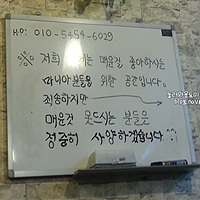 HP: 010-5454-6029
※ 저희 가게는 매운걸 좋아하시는
마니아분들을 위한 공간입니다.
죄송하지만
매운것 못드시는 분들은
정중히 사양하겠습니다 ^^